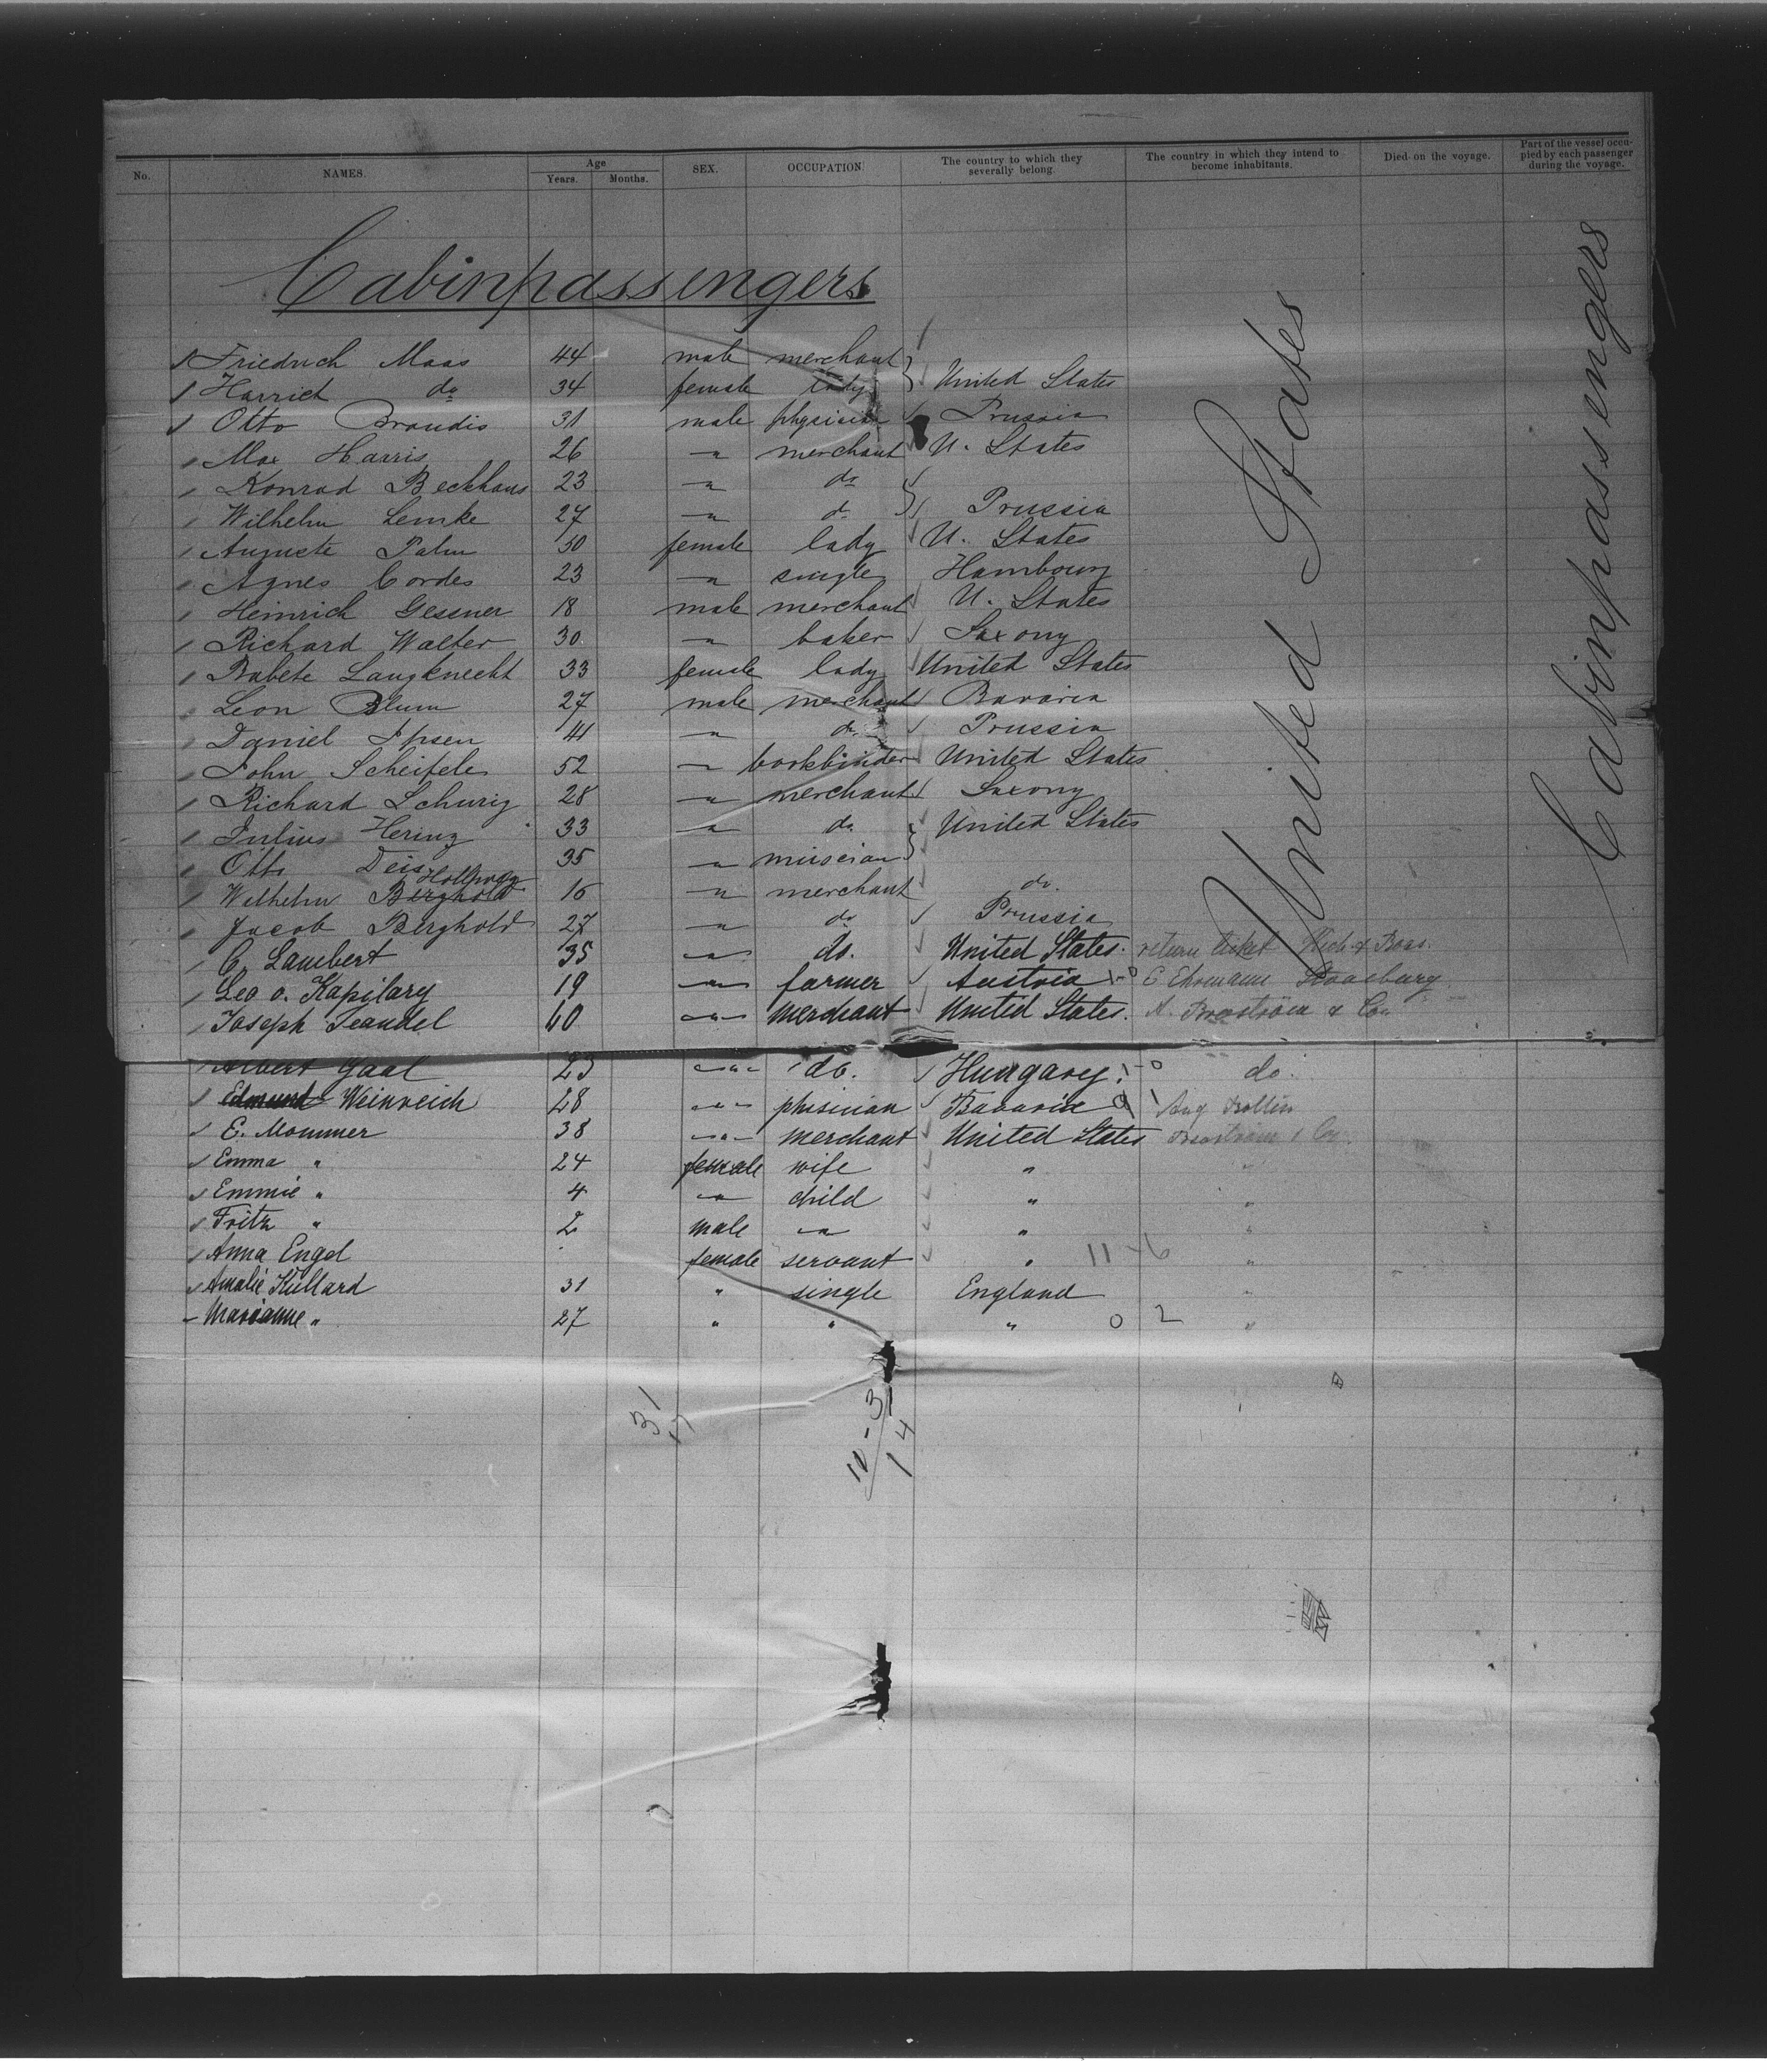 No. NAMES. Age Years. Months. SEX. OCCUPATION. The country to which they severally belong. The country in which they intend to become inhabitants. Died on the voyage. Part of the vessel occupied by each passenger during the voyage.
Cabinpassengers
Friedrich Maas 44 male merchant
Harriet do 34 female lady United States
Otto Brandis 31 male physician Prussia
Max Harris 26 " merchant U. States
Konrad Beckhaus 23 " do
Wilhelm Lemke 27 " do Prussia
Auguste Palm 50 female lady U. States
Agnes Cordes 23 " single Hambourg
Heinrich Gessner 18 male merchant U. States
Richard Walter 30 " baker Saxony
Babete Langknecht 33 female lady United States
Leon Blum 27 male merchant Bavaria
Daniel Ipsen 41 " do Prussia
John Scheifele 52 " bookbinder United States
Richard Schurig 28 " merchant Saxony
Julius Hering 33 " do. United States
Otto Deis 35 " musician
Wilhelm Berghold 16 " merchant do.
Jacob Berghold 27 " do Prussia
C. Lambert 35 " do. United States. return ticket
Leo v. Kapilary 19 " farmer Austria C Ehrmann Strasburg
Joseph Teandel 40 " merchant United States. & Co.
Albert Gaal 23 " do. Hungary. do.
Edmund Weinreich 28 " phisician Bavaria Aug Bollin
E. Mommer 38 " merchant United States
Emma " 24 female wife " "
Emmie " 4 " child " "
Fritz " 2 male " " "
Anna Engel female servant " 11 - 6 "
Amalie Kullard 31 " single England "
Marianne " 27 " " " 0 2 "
United States
Cabinpassengers
31
17
11-3
14